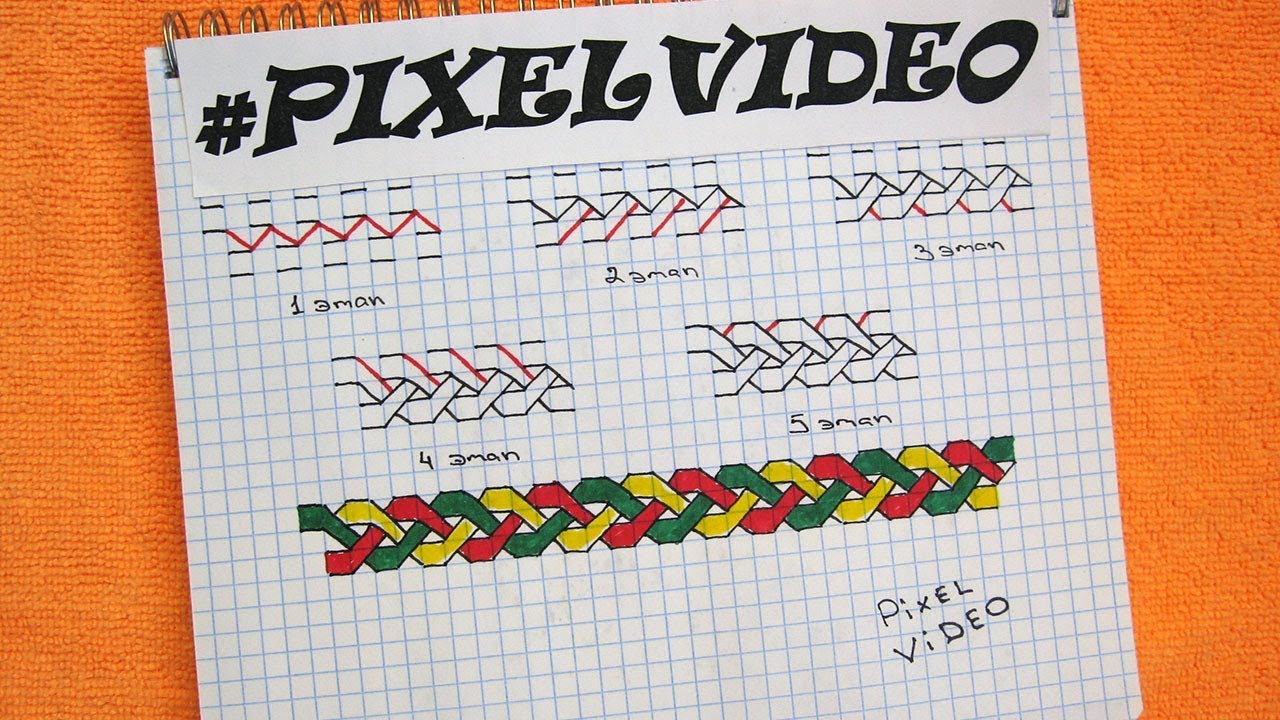 #PIXELVIDEO
1 этап
2 этап
3 этап
4 этап
5 этап
PiXEL
ViDEO